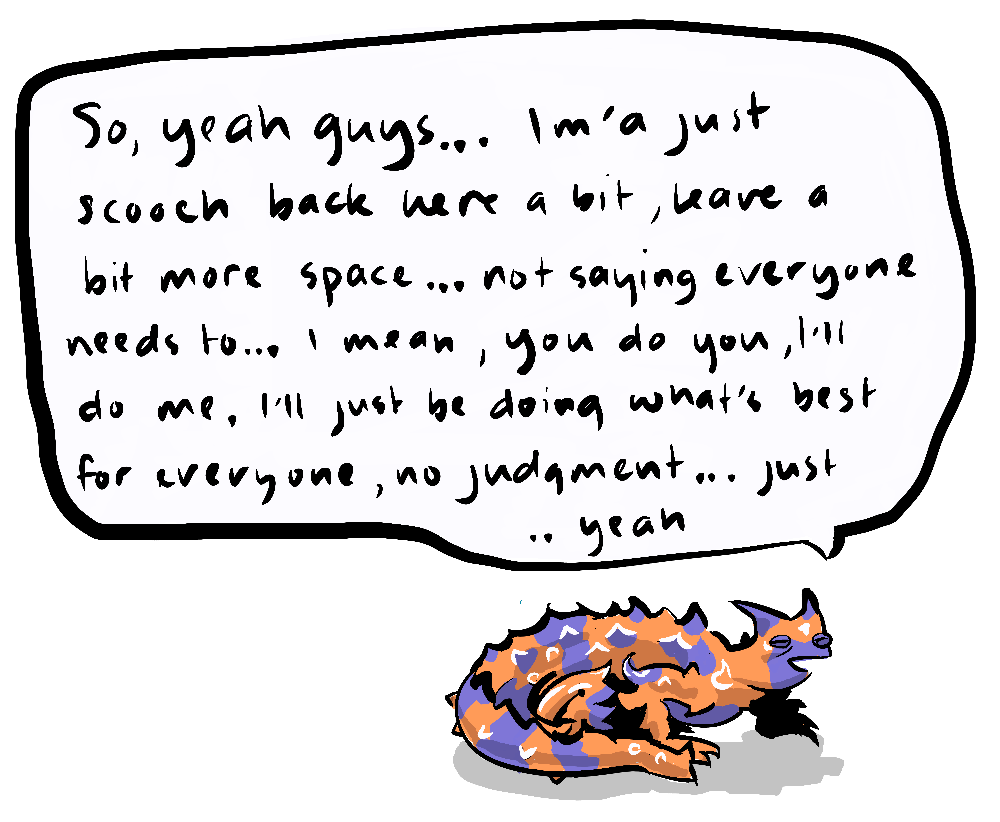 So, yeah guys... Im'a just
scooch back here a bit, leave a
bit more space... not saying everyone
needs to... I mean, you do you, I'll
do me, I'll just be doing what's best
for everyone, no judgment... just
.. yeah